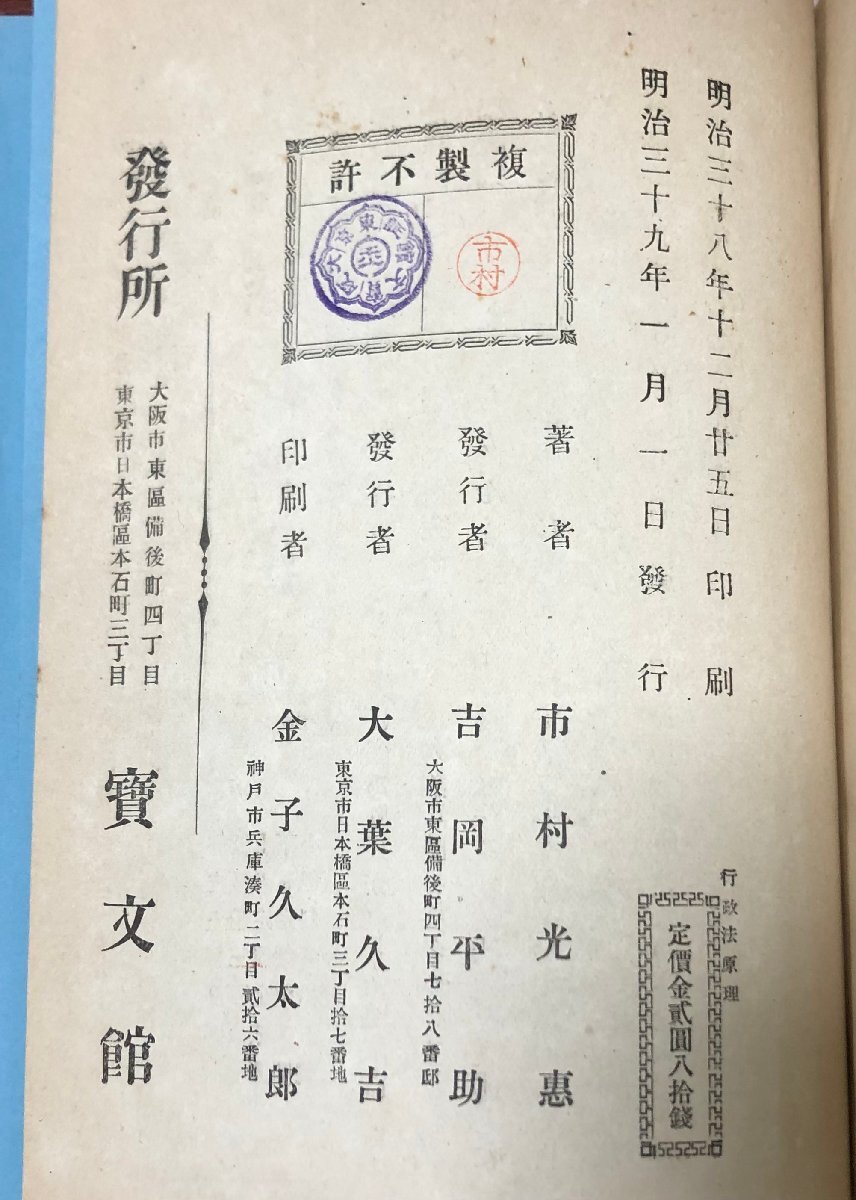 明治三十八年十二月廿五日印刷
明治三十九年一月一日發行
行政法原理
定價金貳圓八拾錢
複製不許
市村
著者 市村光惠
發行者 吉岡平助
大阪市東區備後町四丁目七拾八番邸
發行者 大葉久吉
東京市日本橋區本石町三丁目拾七番地
印刷者 金子久太郎
神戸市兵庫湊町二丁目貳拾六番地
發行所
大阪市東區備後町四丁目
東京市日本橋區本石町三丁目
寶文館